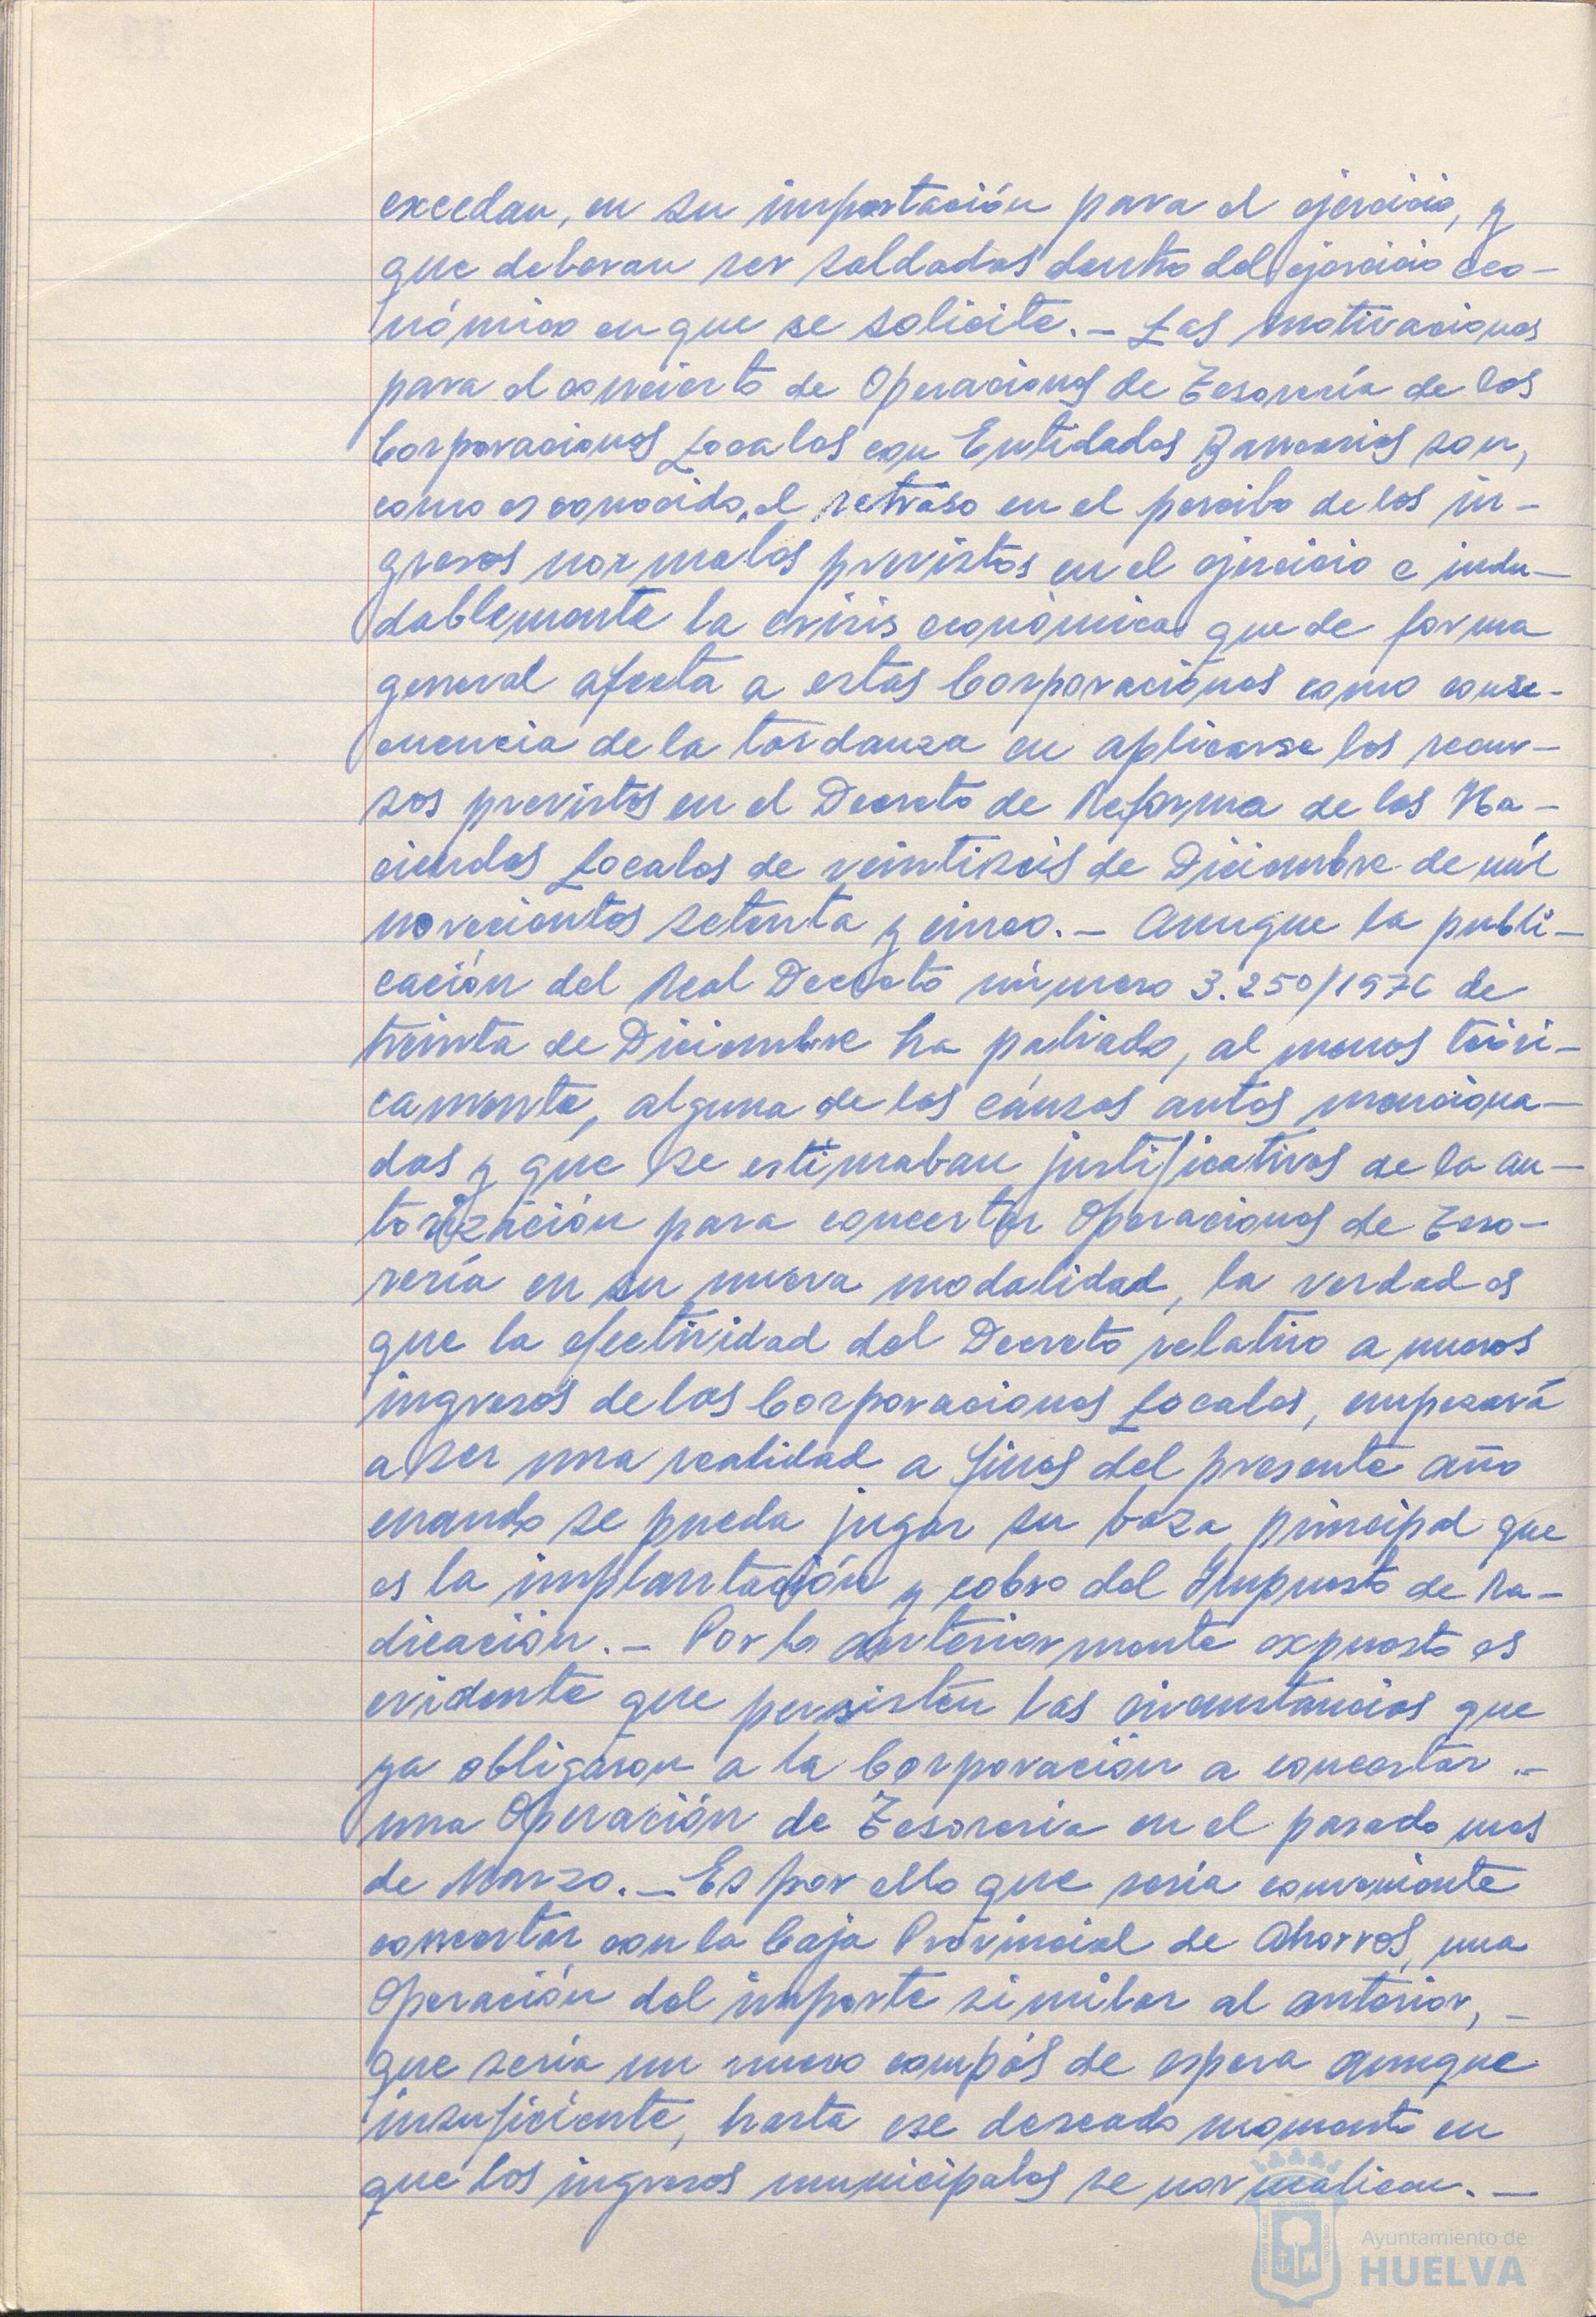 excedan, en su importación para el ejercicio, y
que deberan ser saldadas dentro del ejercicio eco-
nómico en que se solicite.- Las motivaciones
para el concierto de Operaciones de Tesorería de las
Corporaciones Locales con Entidades Bancarias son,
como es conocido, el retraso en el percibo de los in-
gresos normales previstos en el ejercicio e indu-
dablemente la crisis económica que de forma
general afecta a estas Corporaciones como conse-
cuencia de la tardanza en aplicarse los recur-
sos previstos en el Decreto de Reforma de las Ha-
ciendas Locales de veintiseis de Diciembre de mil
novecientos setenta y cinco.- Aunque la publi-
cación del Real Decreto número 3.250/1976 de
treinta de Diciembre ha paliado, al menos teóri-
camente, alguna de las cáusas antes menciona-
das y que se estimaban justificativas de la au-
torización para concertar Operaciones de Teso-
rería en su nueva modalidad, la verdad es
que la efectividad del Decreto relativo a nuevos
ingresos de las Corporaciones Locales, empezará
a ser una realidad a fines del presente año
cuando se pueda jugar su baza principal que
es la implantación y cobro del Impuesto de Ra-
dicación.- Por lo anteriormente expuesto es
evidente que persisten las circunstancias que
ya obligáron a la Corporación a concertar .-
una Operación de Tesoreria en el pasado mes
de Marzo.- Es por ello que sería conveniente
concertar con la Caja Provincial de Ahorros, una
Operación del importe similar al anterior, -
que sería un nuevo compás de espera aunque
insuficiente, hasta ese deseado momento en
que los ingresos municipales se normalicen.-
Ayuntamiento de
HUELVA